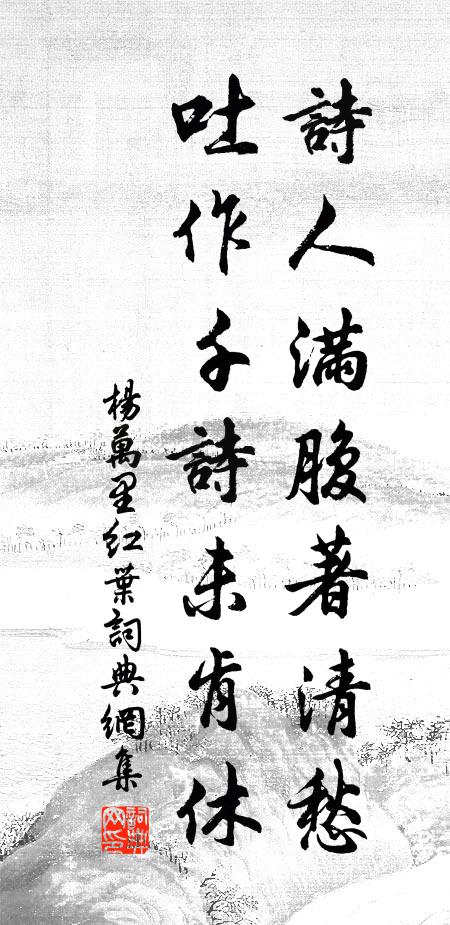 詩人滿腹著清愁
吐作千詩未肯休
楊萬里紅葉詞典網集